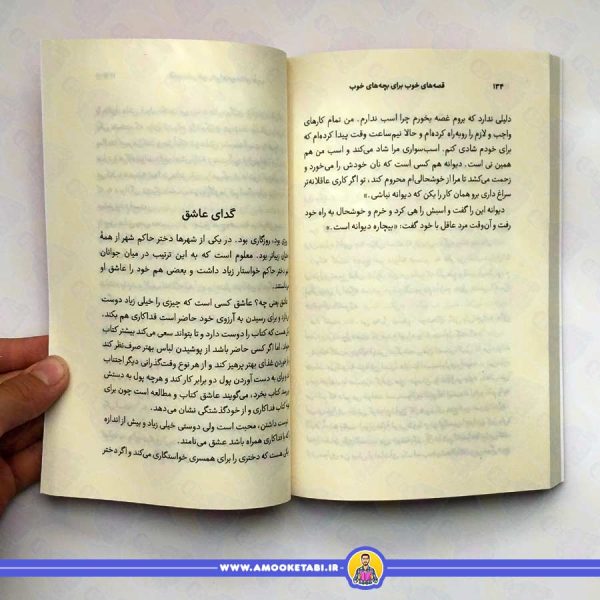 ۱۳۴
قصه‌های خوب برای بچه‌های خوب
دلیلی ندارد که بروم غصه بخورم چرا اسب ندارم. من تمام کارهای
واجب و لازم را روبه‌راه کرده‌ام و حالا نیم‌ساعت وقت پیدا کرده‌ام که
برای خودم شادی کنم. اسب‌سواری مرا شاد می‌کند و اسب من هم
همین نی است. دیوانه هم کسی است که نان خودش را می‌خورد و
زحمت می‌کشد تا مرا از خوشحالی‌ام محروم کند، تو اگر کاری عاقلانه‌تر
سراغ داری برو همان کار را بکن که دیوانه نباشی.»
دیوانه این را گفت و اسبش را هی کرد و خرم و خوشحال به راه خود
رفت و آن‌وقت مرد عاقل با خود گفت: «بیچاره دیوانه است.»
گدای عاشق
بود، روزگاری بود. در یکی از شهرها دختر حاکم شهر از همهٔ
زیباتر بود. معلوم است که به این ترتیب در میان جوانان
دختر حاکم خواستار زیاد داشت و بعضی هم خود را عاشق او
عاشق یعنی چه؟ عاشق کسی است که چیزی را خیلی زیاد دوست
و برای رسیدن به آرزوی خود حاضر است فداکاری هم بکند.
است که کتاب را دوست دارد و تا بتواند سعی می‌کند بیشتر کتاب
اما اگر کسی حاضر باشد از پوشیدن لباس بهتر صرف‌نظر کند
خوردن غذای بهتر پرهیز کند و از هر نوع وقت‌گذرانی دیگر اجتناب
و برای به دست آوردن پول دو برابر کار کند و هرچه پول به دستش
کتاب بخرد، می‌گویند عاشق کتاب و مطالعه است چون برای
کتاب فداکاری و از خودگذشتگی نشان می‌دهد.
دوست داشتن، محبت است ولی دوستی خیلی زیاد و بیش از اندازه
که با فداکاری همراه باشد عشق می‌نامند.
هست که دختری را برای همسری خواستگاری می‌کند و اگر دختر
WWW.AMOOKETABI.IR